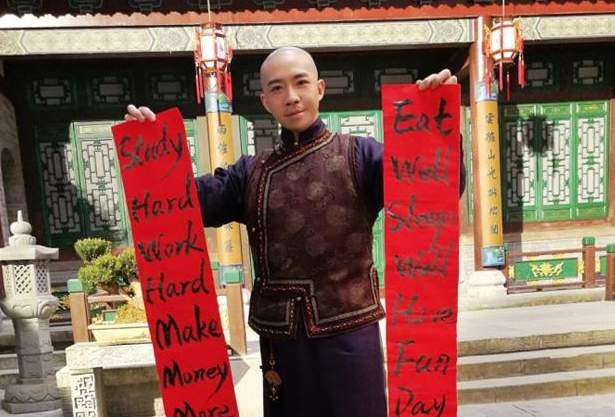 Study
Hard
Work
Hard
Make
Money
More
Eat
Well
Sleep
Well
Have
Fun
Day